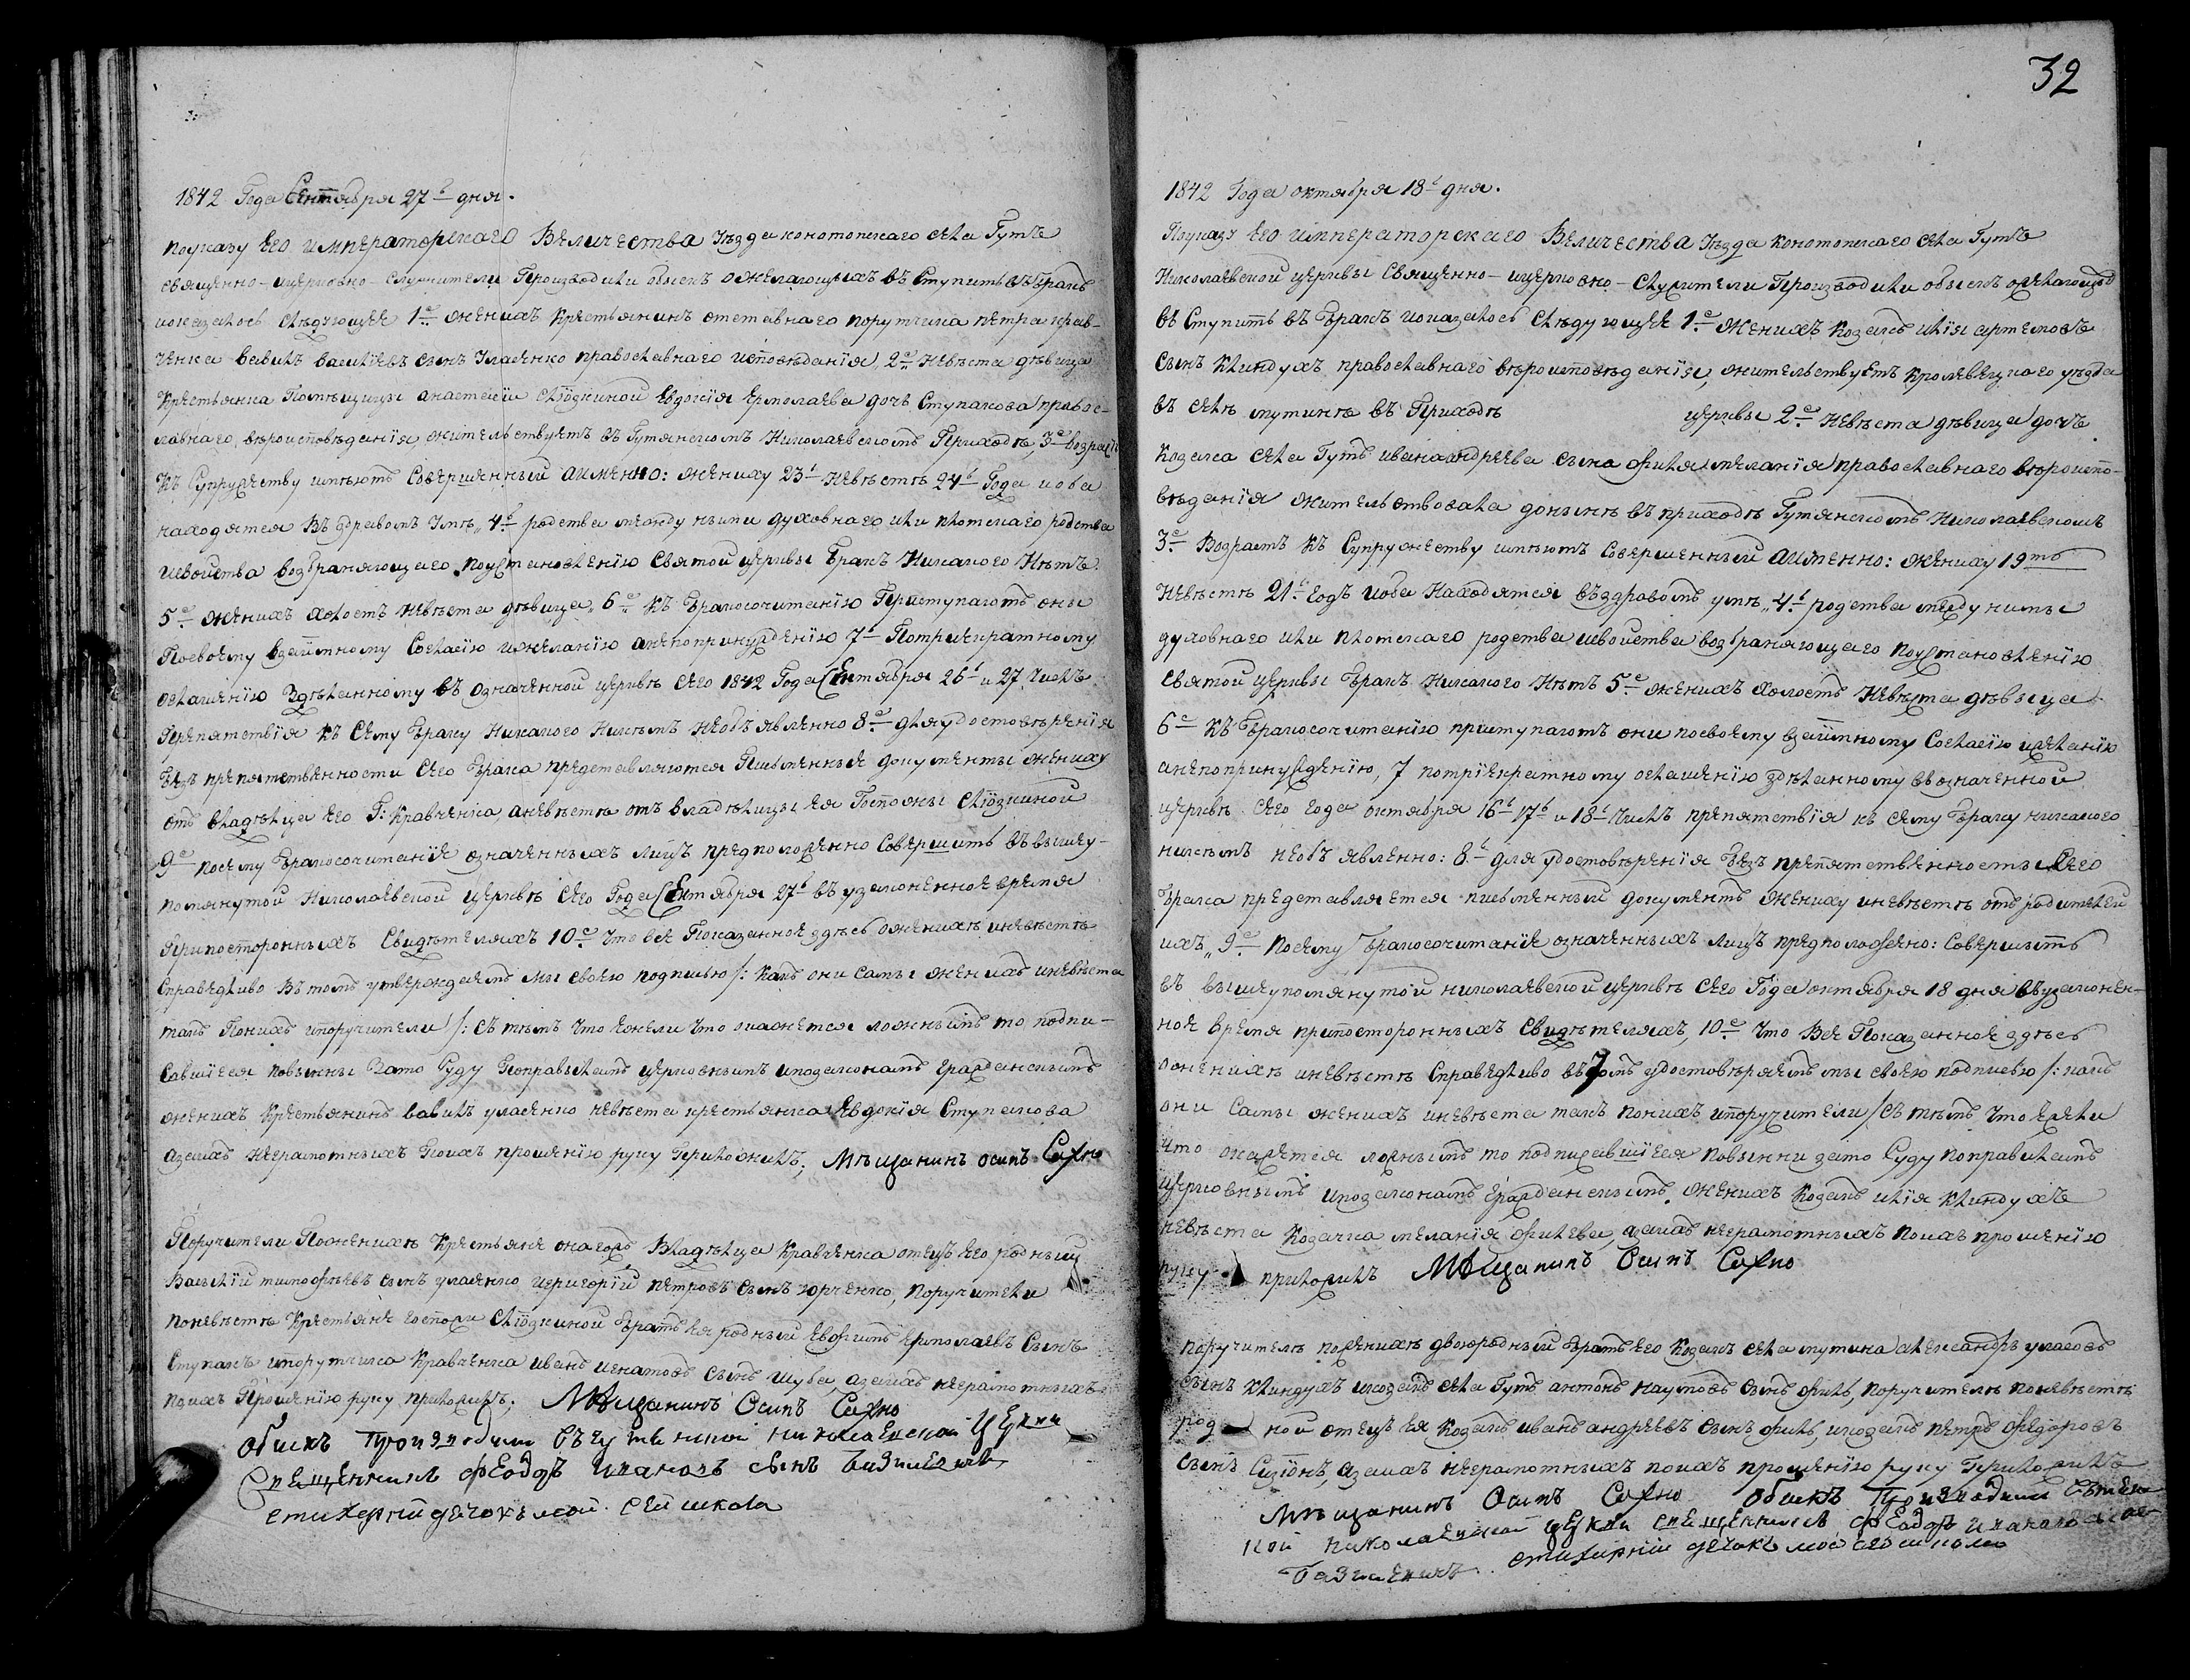 1842 Года Сентября 27го дня.
Поуказу Его императорскаго Величества Уѣзда конотопскаго села Гутъ
священно-ицерковно-служители Производили обыскъ ожелающихъ въ Ступить въ Бракъ
иоказалось слѣдующее 1е женихъ крестьянинъ отставнаго порутчика петра крав-
ченка вавилъ васильевъ сынъ Уласенко православнаго исповѣданія, 2е Невѣста дѣвица
крестьянка Помѣщицы анастасіи слюзкиной Евдокія Ермолаева дочь Ступакова правос-
лавнаго вѣроисповѣданія жительствуетъ въ Гутянскомъ Николаевскомъ Приходѣ, 3е возрастъ
къ Супружеству имѣютъ Совершенный аименно: жениху 23 невѣстѣ 24 Года иоба
находятся въ здравомъ Умѣ, 4е родства между ними духовнаго или плотскаго родства
исвойства возбраняющаго поустановленію святой церквы Бракъ Никакого Нѣтъ
5е женихъ холостъ невѣста дѣвица, 6е къ Бракосочитанію Приступаютъ они
Посвоему взаимному Согласію ижеланію анепопринужденію 7е Потриекратному
оглашенію Здѣланному въ означенной церквѣ сего 1842 Года Сентября 26 и 27 числъ
Препятствія къ сему Браку Никакого Никѣмъ необъявленно 8е дляудостовѣренія
безъ препятственности сего брака представляются Письменные документы жениху
отъ владѣльца его Г: Кравченка, аневѣстѣ отъ владѣлицы ея Госпожы слюзкиной
9е посему Бракосочитаніе означенныхъ лицъ предположенно Совершить въ вышеу-
помянутой Николаевской церквѣ сего Года Сентября 27 въ узаконенное время
Припостороннихъ Свидѣтеляхъ 10е Что все Показанное здѣсь оженихѣ иневѣстѣ
Справедливо въ томъ утверждаемъ мы своею подписью /: какъ они самы женихъ иневѣста
такъ Понихъ ипоручители /: съ тѣмъ что ежели что окажется ложнымъ то подпи-
савшіеся повынны Зато Суду Поправиламъ церковнымъ ипозаконамъ гражданскимъ
женихъ крестьянинъ вавилъ уласенко невѣста крестьянка Евдокія Ступакова
азаихъ неграмотныхъ Поихъ прошенію руку Приложилъ; Мѣщанинъ осипъ Сахно
Поручители Поженихѣ крестьяне онагожъ Владѣльца Кравченка отецъ его родный
Василій тимофѣевъ сынъ уласенко игригорій петровъ сынъ юрченко, поручители
поневѣстѣ крестьяне госпожи слюзкиной братъ ея родный евфимъ ермолаевъ Сынъ
Ступакъ ипорутчика Кравченка иванъ игнатовъ сынъ шува, азаихъ неграмотныхъ
поихъ Прошенію руку приложилъ; Мѣщанинъ Осипъ Сахно
обискъ Производили николаевской Церкви
Священникъ феодоръ ивановъ синъ Базилевичъ
стихарний дячокъ

32
1842 Года октября 18го дня.
Поуказу Его императорскаго Величества Уѣзда конотопскаго села Гутъ
Николаевской церквы Священно-ицерковно-служители Производили обыскъ ожелающихъ
въ Ступить въ Бракъ иоказалось слѣдующее 1е женихъ козакъ илія артемовъ
сынъ клиндухъ православнаго вѣроисповѣданія, жительствуетъ кролевецкаго уѣзда
въ селѣ мутинѣ въ Приходѣ церквы 2е невѣста дѣвица дочь
козака села Гутъ ивана андреева сына филя меланія православнаго вѣроиспо-
вѣданія жительствовала донынѣ въ приходѣ Гутянскомъ Николаевскомъ
3е Возрастъ къ Супружеству имѣютъ Совершенный аименно: жениху 19ть
невѣстѣ 21 годъ иоба Находятся въздравомъ умѣ, 4е родства между нимы
духовнаго или плотскаго родства исвойства возбраняющаго поустановленію
святой церквы Бракъ никакого Нѣтъ 5е женихъ холостъ Невѣста дѣвыца
6е къ Бракосочитанію приступаютъ они посвоему взаимному Согласію ижеланію
анепопринужденію, 7 потріекратному оглашенію здѣланному въ означенной
церквѣ сего года октября 16 17 и 18 числъ препятствія къ сему Браку никакого
никѣмъ необъявленно: 8е для удостовѣренія безъ препятственносты сего
брака представляется письменный документъ жениху иневѣстѣ отъ родителей
ихъ, 9е Посему Бракосочитаніе означенныхъ лицъ предположено: Совершыть
въ вышеупомянутой николаевской церквѣ сего Года октября 18 дня въузаконен-
ное время припостороннихъ Свидѣтеляхъ, 10е Что Все Показанное здѣсь
оженихѣ иневѣстѣ Справедливо въ томъ удостовѣряемъ мы своею подписью /: какъ
они самы женихъ иневѣста такъ понихъ ипоручители /: съ тѣмъ что ежели
что окажется ложнымъ то подписавшіеся повынни зато Суду поправиламъ
церковнымъ ипозаконамъ гражданскимъ, женихъ козакъ илія клиндухъ
невѣста козачка меланія филева, азаихъ неграмотныхъ поихъ прошенію
руку приложилъ Мѣщанинъ Осипъ Сахно
поручителѣ поженихѣ двоюродный братъ его козакъ села мутина александръ уласовъ
сынъ клиндухъ икозакъ села Гутъ антонъ наумовъ сынъ филь, поручителѣ поневѣстѣ
род ной отецъ ея козакъ иванъ андреевъ сынъ филь, икозакъ петръ федоровъ
сынъ азаихъ неграмотныхъ поихъ прошенію руку Приложилъ
Мѣщанинъ Осипъ Сахно обискъ Производили
николаевской церкви священникъ феодоръ ивановъ
Базилевичъ. стихарній дячокъ